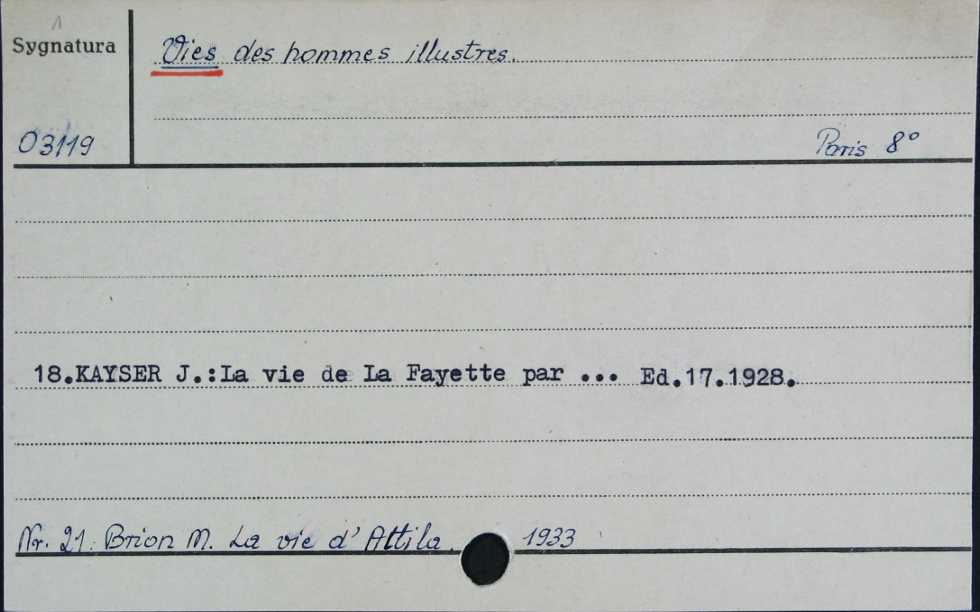 1
Sygnatura
Vies des hommes illustres.
03119
Paris 8°
18.KAYSER J.:La vie de La Fayette par ... Ed.17.1928.
Nr. 21. Brion M. La vie d'Attila. 1933